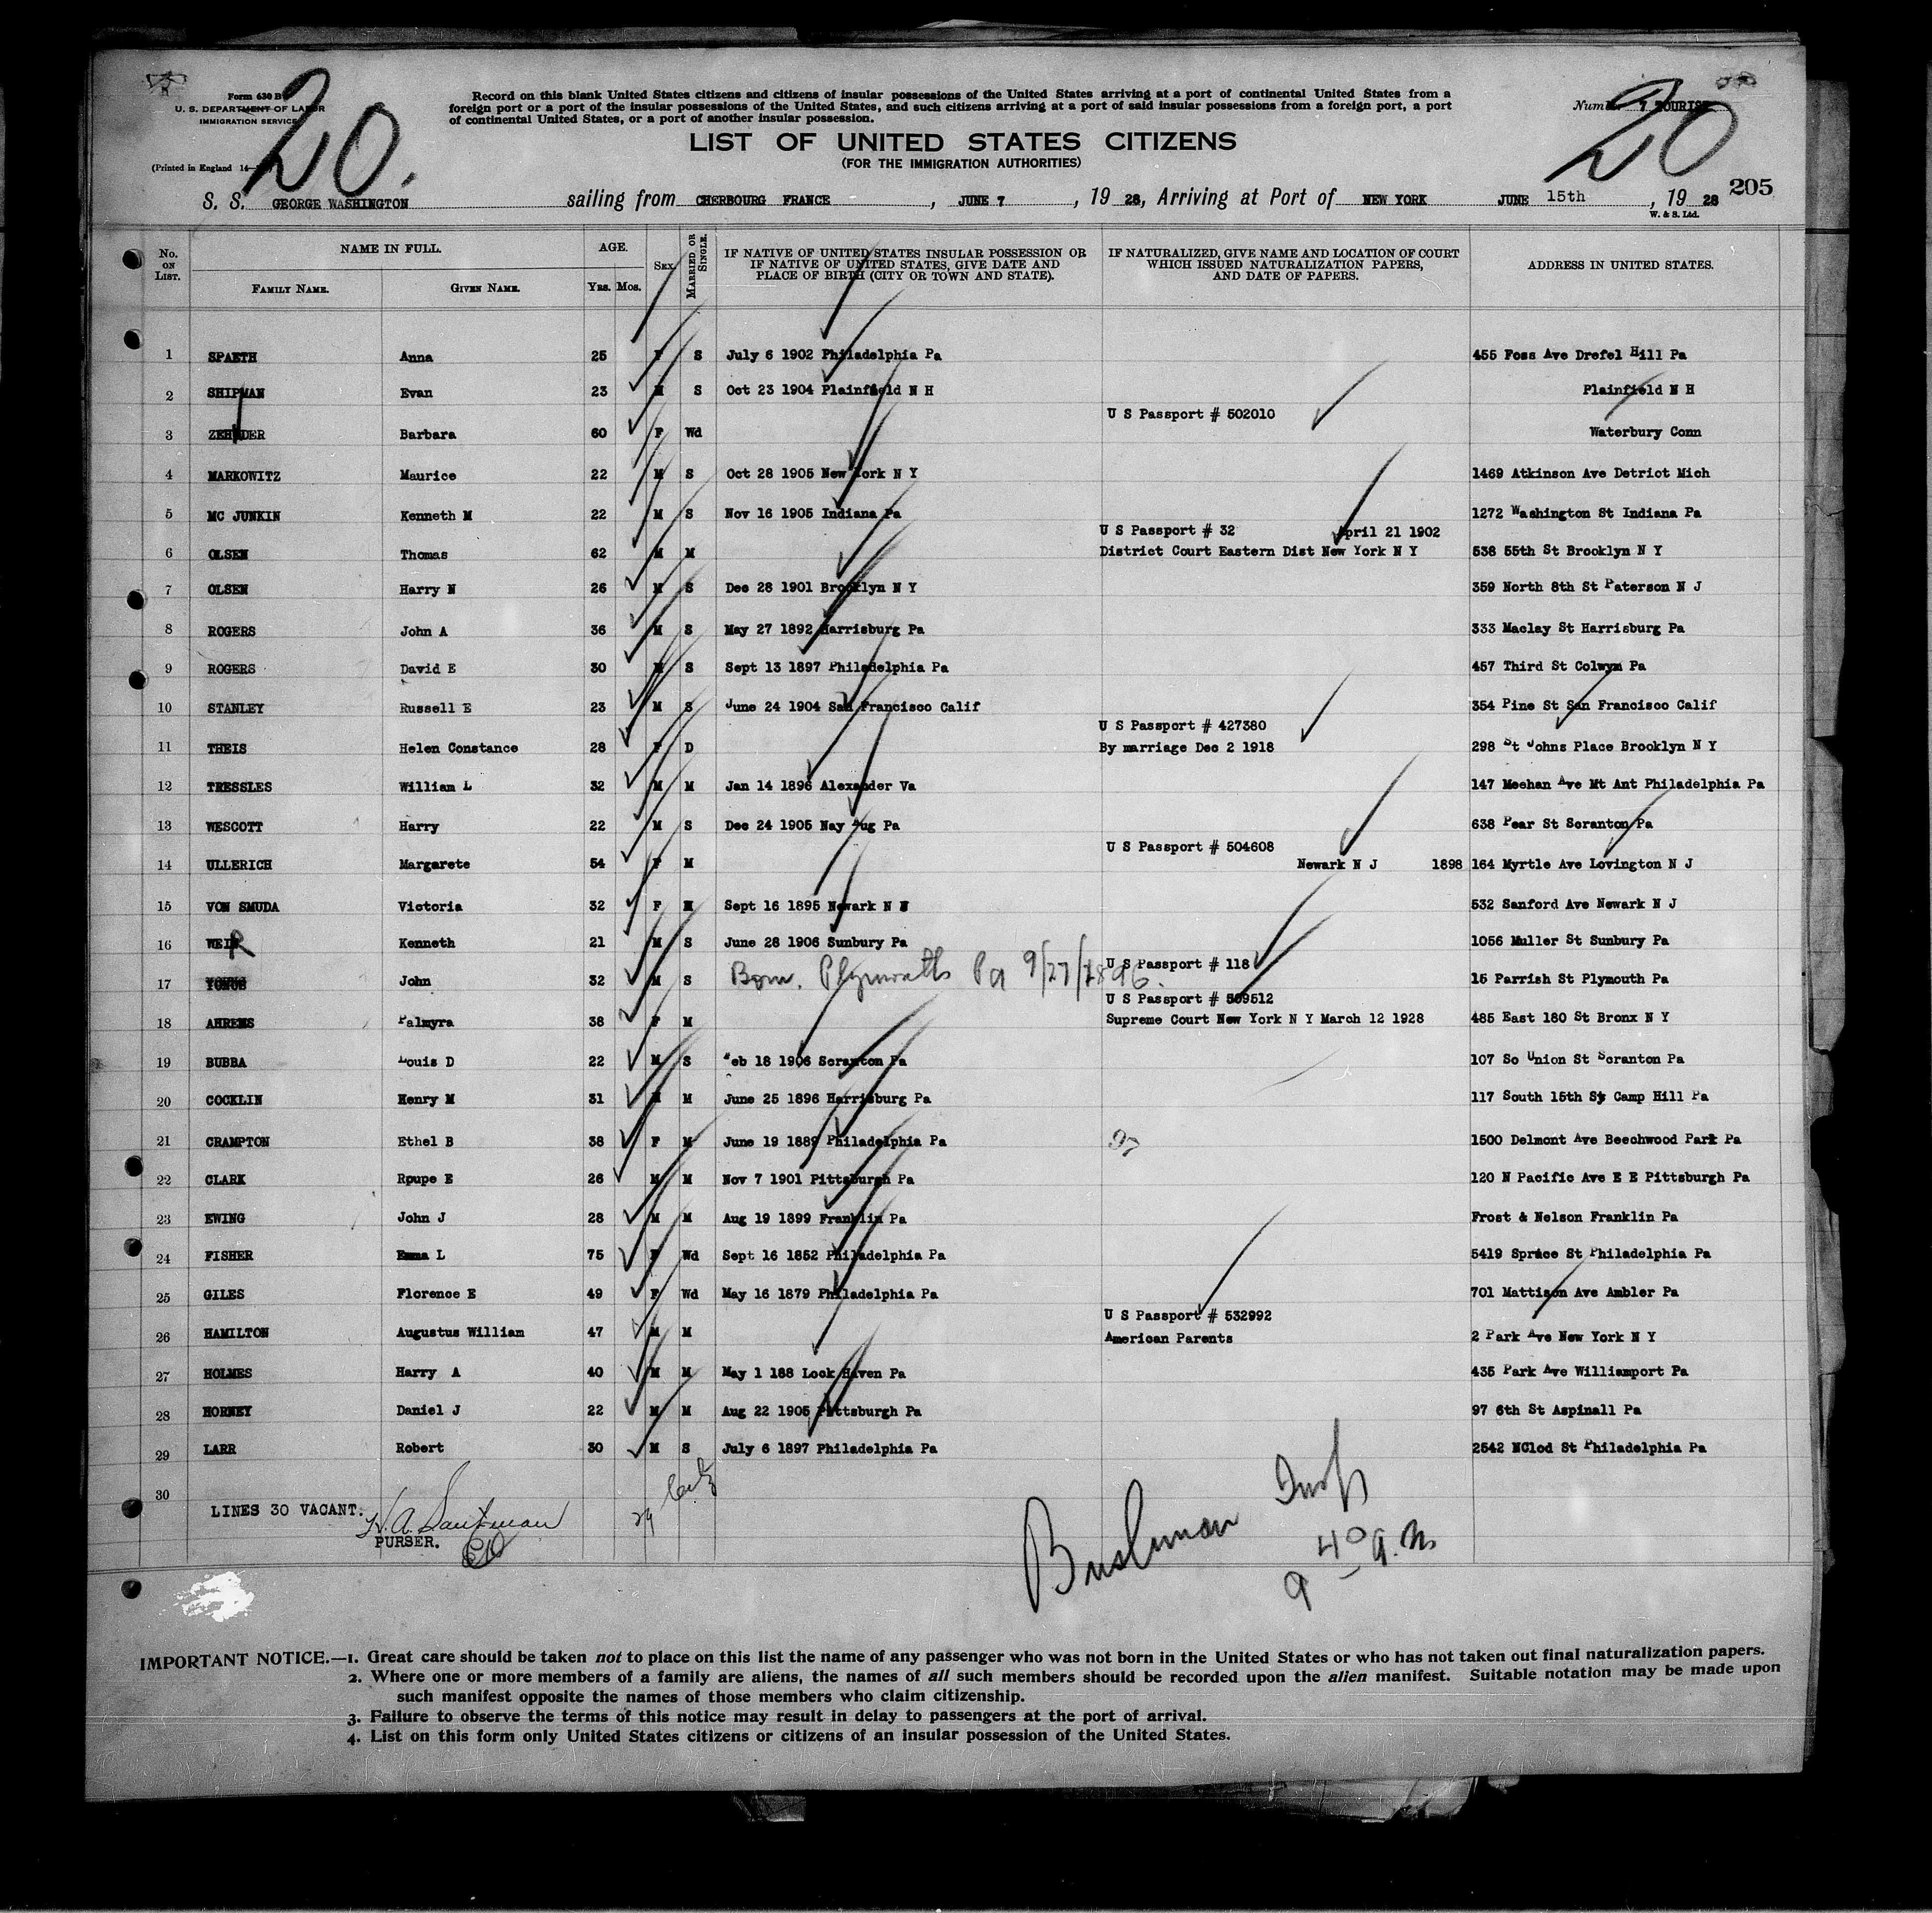 Form 630 B
U. S. DEPARTMENT OF LABOR
IMMIGRATION SERVICE
(Printed in England
20.
Record on this blank United States citizens and citizens of insular possessions of the United States arriving at a port of continental United States from a
foreign port or a port of the insular possessions of the United States, and such citizens arriving at a port of said insular possessions from a foreign port, a port
of continental United States, or a port of another insular possession.
LIST OF UNITED STATES CITIZENS
(FOR THE IMMIGRATION AUTHORITIES)
7 TOURIST
20
205
S. S. GEORGE WASHINGTON sailing from CHERBOURG FRANCE, JUNE 7, 19 28, Arriving at Port of NEW YORK JUNE 15th, 19 28
W. & S. Ltd.
No. ON LIST. NAME IN FULL. FAMILY NAME. GIVEN NAME. AGE. YRS. MOS. SEX. MARRIED OR SINGLE. IF NATIVE OF UNITED STATES INSULAR POSSESSION OR IF NATIVE OF UNITED STATES, GIVE DATE AND PLACE OF BIRTH (CITY OR TOWN AND STATE). IF NATURALIZED, GIVE NAME AND LOCATION OF COURT WHICH ISSUED NATURALIZATION PAPERS, AND DATE OF PAPERS. ADDRESS IN UNITED STATES.
1 SPAETH Anna 25 F S July 6 1902 Philadelphia Pa 455 Foss Ave Drefel Hill Pa
2 SHIPMAN Evan 23 M S Oct 23 1904 Plainfield N H Plainfield N H
U S Passport # 502010
3 ZEHNDER Barbara 60 F Wd Waterbury Conn
4 MARKOWITZ Maurice 22 M S Oct 28 1905 New York N Y 1469 Atkinson Ave Detriot Mich
5 MC JUNKIN Kenneth M 22 M S Nov 16 1905 Indiana Pa 1272 Washington St Indiana Pa
U S Passport # 32 April 21 1902
6 OLSEN Thomas 62 M M District Court Eastern Dist New York N Y 538 55th St Brooklyn N Y
7 OLSEN Harry N 26 M S Dec 28 1901 Brooklyn N Y 359 North 8th St Paterson N J
8 ROGERS John A 36 M S May 27 1892 Harrisburg Pa 333 Maclay St Harrisburg Pa
9 ROGERS David E 30 M S Sept 13 1897 Philadelphia Pa 457 Third St Colwym Pa
10 STANLEY Russell E 23 M S June 24 1904 San Francisco Calif 354 Pine St San Francisco Calif
U S Passport # 427380
11 THEIS Helen Constance 28 F D By marriage Dec 2 1918 298 St Johns Place Brooklyn N Y
12 TRESSLES William L 32 M M Jan 14 1896 Alexander Va 147 Meehan Ave Mt Ant Philadelphia Pa
13 WESCOTT Harry 22 M S Dec 24 1905 Nay Aug Pa 638 Pear St Scranton Pa
U S Passport # 504608
14 ULLERICH Margarete 54 F M Newark N J 1898 164 Myrtle Ave Lovington N J
15 VON SMUDA Victoria 32 F M Sept 16 1895 Newark N J 532 Sanford Ave Newark N J
16 WEIR Kenneth 21 M S June 28 1906 Sunbury Pa 1056 Muller St Sunbury Pa
U S Passport # 118
17 John 32 M S Born. Plymouth Pa 9/27/1896. 15 Parrish St Plymouth Pa
U S Passport # 509512
18 AHRENS Palmyra 38 F M Supreme Court New York N Y March 12 1928 485 East 180 St Bronx N Y
19 BUBBA Louis D 22 M S Feb 18 1906 Scranton Pa 107 So Union St Scranton Pa
20 COCKLIN Henry M 31 M M June 25 1896 Harrisburg Pa 117 South 15th St Camp Hill Pa
21 CRAMPTON Ethel B 38 F M June 19 1889 Philadelphia Pa 1500 Delmont Ave Beechwood Park Pa
22 CLARK Roupe E 26 M M Nov 7 1901 Pittsburgh Pa 120 N Pacific Ave E E Pittsburgh Pa
23 EWING John J 28 M M Aug 19 1899 Franklin Pa Frost & Nelson Franklin Pa
24 FISHER Emma L 75 F Wd Sept 16 1852 Philadelphia Pa 5419 Spruce St Philadelphia Pa
25 GILES Florence E 49 F Wd May 16 1879 Philadelphia Pa 701 Mattison Ave Ambler Pa
U S Passport # 532992
26 HAMILTON Augustus William 47 M M American Parents 2 Park Ave New York N Y
27 HOLMES Harry A 40 M M May 1 188 Lock Haven Pa 435 Park Ave Williamport Pa
28 HORNEY Daniel J 22 M M Aug 22 1905 Pittsburgh Pa 97 6th St Aspinall Pa
29 LARR Robert 30 M S July 6 1897 Philadelphia Pa 2542 NClod St Philadelphia Pa
30
LINES 30 VACANT.
PURSER.
Bushman Insp
9 40 a.m
IMPORTANT NOTICE.—1. Great care should be taken not to place on this list the name of any passenger who was not born in the United States or who has not taken out final naturalization papers.
2. Where one or more members of a family are aliens, the names of all such members should be recorded upon the alien manifest. Suitable notation may be made upon
such manifest opposite the names of those members who claim citizenship.
3. Failure to observe the terms of this notice may result in delay to passengers at the port of arrival.
4. List on this form only United States citizens or citizens of an insular possession of the United States.